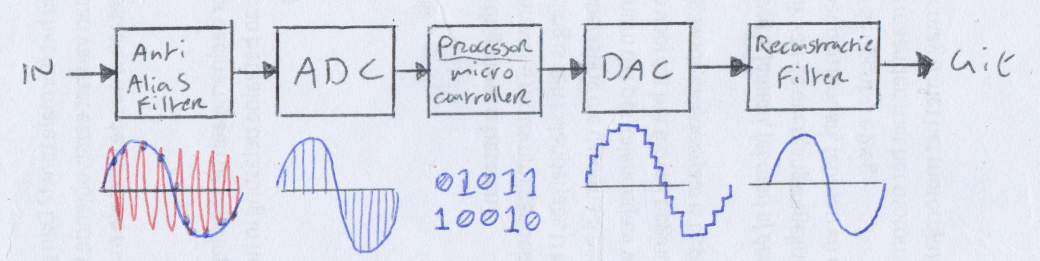 IN
Anti
Alias
Filter
ADC
Processor/
micro
controller
DAC
Reconstructie
Filter
uit
01011
10010